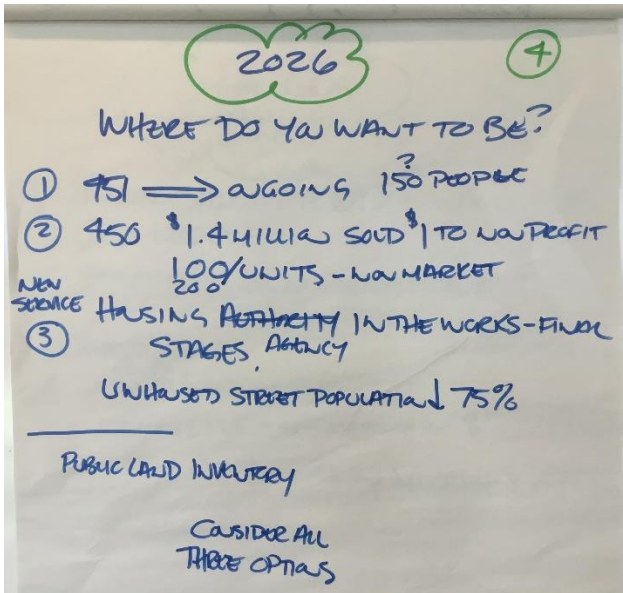 2026
4
WHERE DO YOU WANT TO BE?
1 451 ⟹ ONGOING 150 PEOPLE
?
2 450 $1.4 MILLION SOLD $1 TO NON PROFIT
100/UNITS - NON MARKET
200
NEW
SERVICE
3 HOUSING AUTHORITY IN THE WORKS - FINAL
STAGES, AGENCY
UNHOUSED STREET POPULATION ↓ 75%
PUBLIC LAND INVENTORY
CONSIDER ALL
THREE OPTIONS